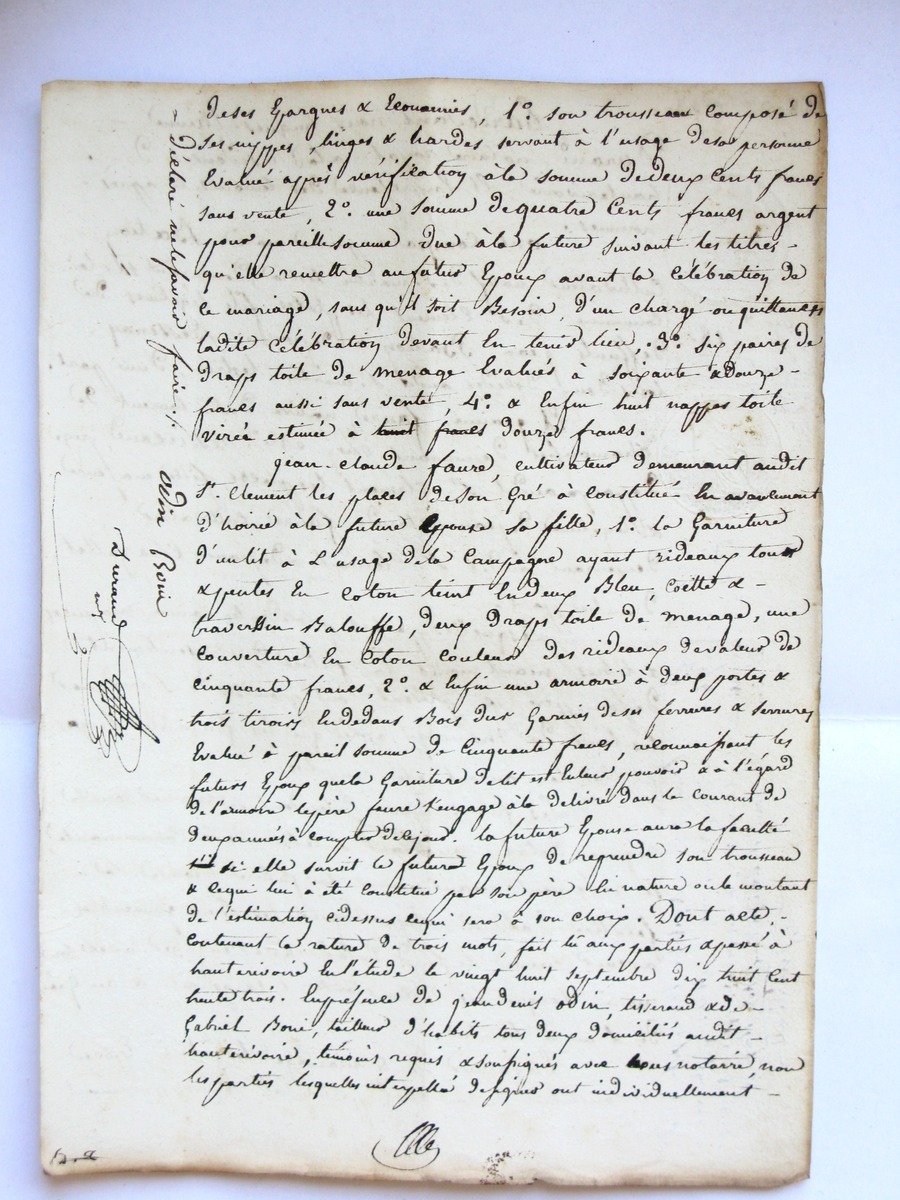 de ses Epargnes & Economies, 1°. son trousseau composé de
ses nippes, linges & hardes servant à l'usage de sa personne
Evalué après vérification à la somme de deux cents francs
sans vente, 2°. une somme de quatre Cents francs argent
pour pareille somme due à la future suivant les titres -
qu'elle remettra au futur Epoux avant la célébration de
ce mariage, sans qu'il soit Besoin, d'un chargé ou quittances
ladite Célébration devant En tenir lieu, .3°. six paires de
Draps toile de menage Evalués à soixante & Douze -
francs aussi sans vente, 4°. & Enfin huit nappes toile
virée estimée à huit francs douze francs.
jean-claude faure, cultivateur demeurant audit
St. Clement les places, de son Gré à constitué En avancement
d'hoirie à la future Epouse sa fille, 1°. la Garniture
d'un lit à L'usage de la Campagne ayant rideaux tour
& pentes En coton teint En deux Bleu, Coette & -
traversin Balouffe, deux Draps toile de menage, une
couverture En Coton couleur des rideaux de valeur de
Cinquante francs, 2°. & Enfin une armoire à deux portes &
trois tiroirs En dedans Bois dur Garnies de ses ferrures & serrures
Evalué à pareil somme de Cinquante francs, reconnaissant les
futurs Epoux que la Garniture de lit est En leur pouvoir & à l'égard
de l'armoire le père faure s'engage à la delivré dans le courant de
deux années à compter de ce jour. la future Epouse aura la faculté
si elle survit le futur Epoux de reprendre son trousseau
& ce qui lui à été Constitué par son père En nature ou le montant
de l'estimation cidessus ce qui sera à son choix. Dont acte, -
contenant la rature de trois mots, fait lû aux parties & passé à
hauterivoire En l'étude le vingt huit septembre dix huit Cent
trente trois. En présence de jean denis odin, tisserand & de -
Gabriel Boni, tailleur d'habits tous deux domiciliés audit -
hauterivoire, témoins requis & soussignés avec nous notaire, non
les parties lesquelles interpellé de signer ont individuellement -
- déclaré ne le savoir faire ./.
odin Boni
Durand